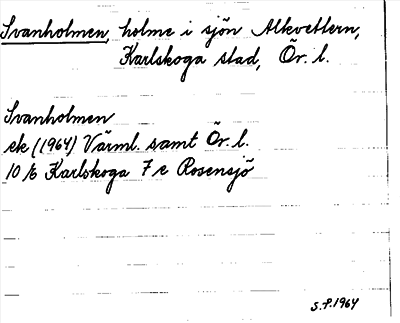 Svanholmen, holme i sjön Alkvettern,
Karlskoga stad, Ör. l.
Svanholmen
ek (1964) Värml. samt Ör. l.
10 E Karlskoga 7 c Rosensjö
S.P. 1964